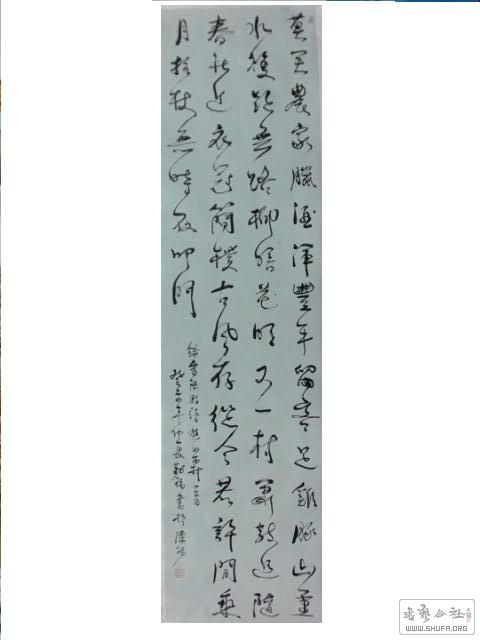 莫笑農家臘酒渾豐年留客足雞豚山重
水複疑無路柳暗花明又一村簫鼓追隨
春社近衣冠簡樸古風存從今若許閒乘
月拄杖無時夜叩門
錄宋陸游詩遊山西村一首
癸巳年仲夏書於
书艺公社
WWW.SHUFA.ORG